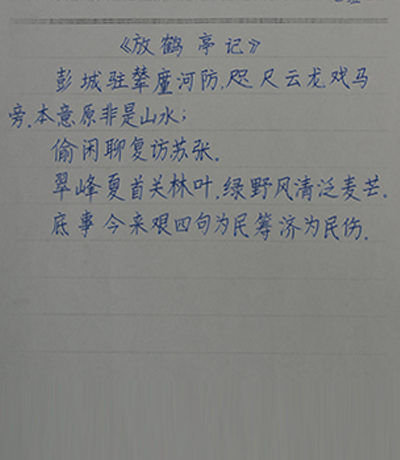 《放鹤亭记》
彭城驻辇廑河防,咫尺云龙戏马
旁.本意原非是山水;
偷闲聊复访苏张.
翠峰夏首关林叶,绿野风清泛麦芒.
底事今来艰四句为民筹济为民伤.